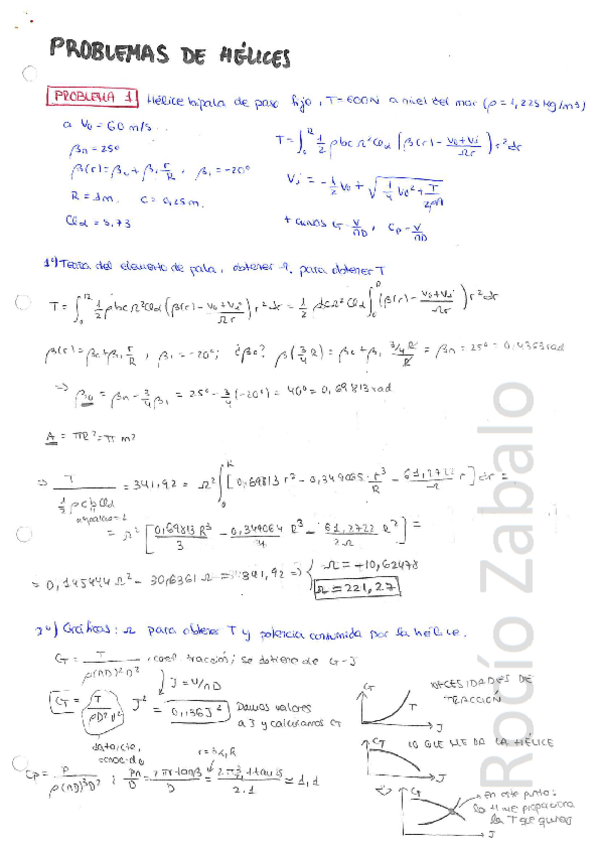 PROBLEMAS DE HÉLICES
PROBLEMA 1 Hélice bipala de paso fijo, T=600N a nivel del mar (ρ=1,225 kg/m3)
a V0=60 m/s...
βn=25º
β(r)=β0+β1 r/R, β1=-20º
R=1m. C=0,25m.
Clα=5,73
T=∫0R 1/2 ρbcΩ²Clα (β(r)-(V0+Vi)/Ωr) r² dr
Vi=-1/2 V0+√(1/4 V0²+T/2ρA)
+ curvas CT-V/nD, CP-V/nD
1º) Teoría del elemento de pala, obtener Ω para obtener T
T=∫0R 1/2 ρbcΩ²Clα (β(r)-(V0+Vi)/Ωr) r² dr = 1/2 ρbcΩ²Clα ∫0R (β(r)-(V0+Vi)/Ωr) r² dr
β(r)=β0+β1 r/R, β1=-20º; ¿β0? β(3/4 R)=β0+β1 (3/4 R)/R=βn=25º=0,4363rad
=> β0=βn-3/4 β1=25º-3/4(-20º)=40º=0,69813rad
A=πR²=π m²
=> T/(1/2 ρcbClα)=341,92=Ω²∫0R [0,69813 r²-0,349065·r³/R-61,2722/Ω r] dr=
=Ω² [0,69813 R³/3-0,349064/4 R³-61,2722/2Ω R²]=
=0,145444 Ω²-30,6361 Ω=341,92 => { Ω=-10,62478
Ω=221,27
2º) Gráficas: Ω para obtener T y potencia consumida por la hélice.
CT=T/ρ(nD)²D², coef tracción; se obtiene de CT-J
J=V/nD
CT=T/ρD²V² J²=0,136J² Damos valores a J y calculamos CT
dato, cte, conocido
CP=P/ρ(nD)³D²; 
CT T J
NECESIDADES DE TRACCIÓN
CT J
LO QUE ME DA LA HÉLICE
CT J
en este punto:
la T que quiero
Rocío Zabalo